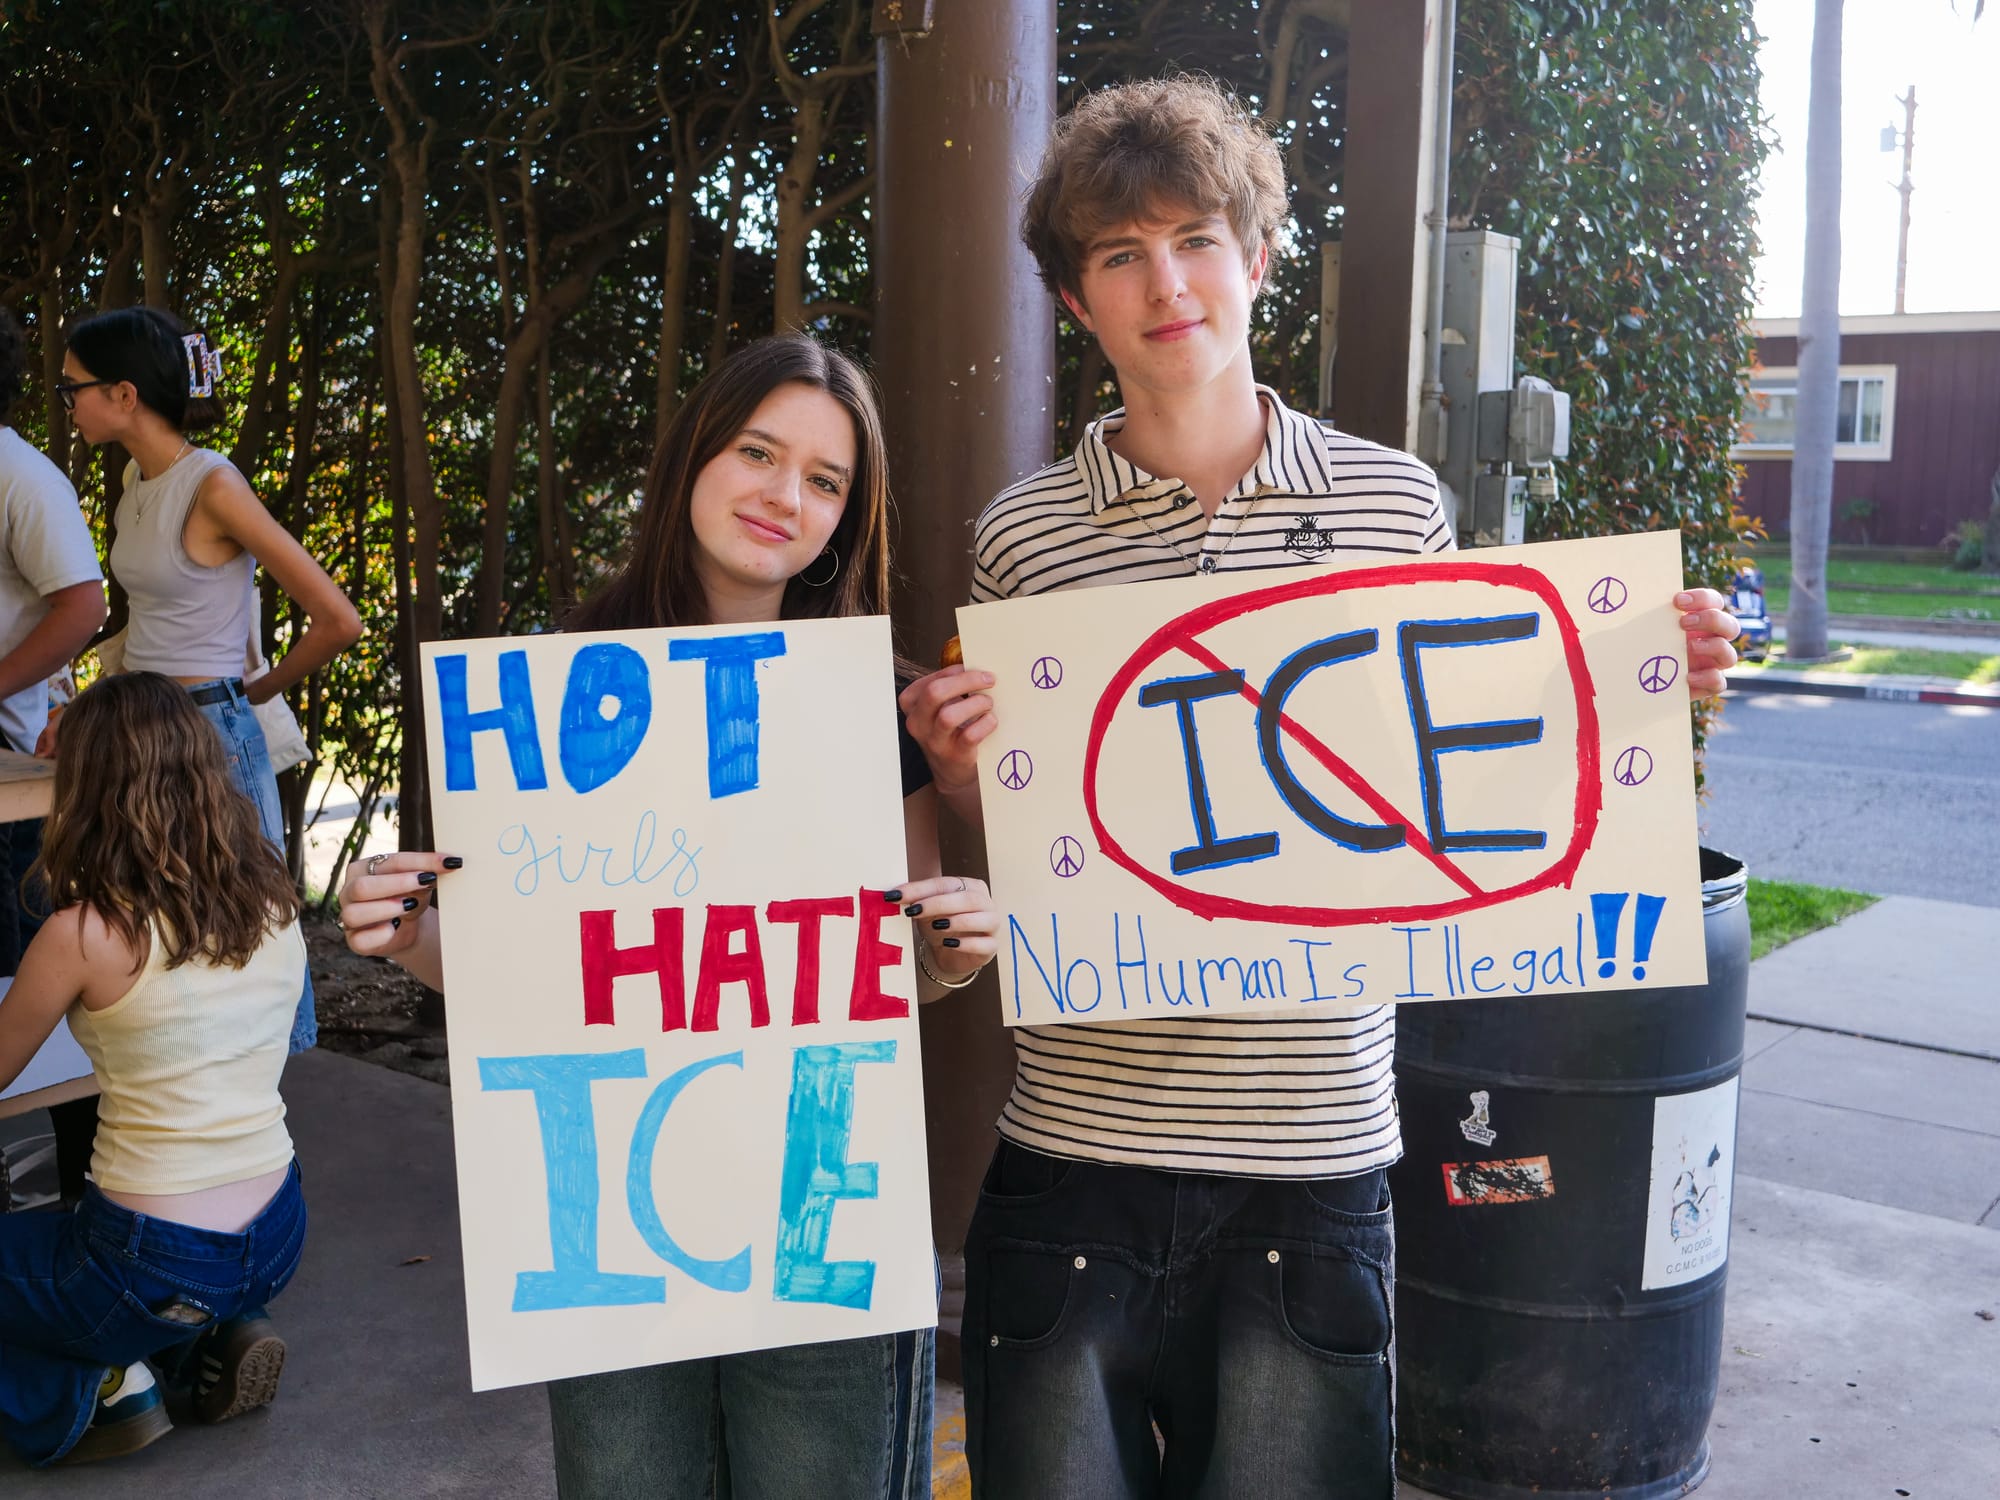 HOT
girls
HATE
ICE
ICE
No Human Is Illegal!!
NO DOGS